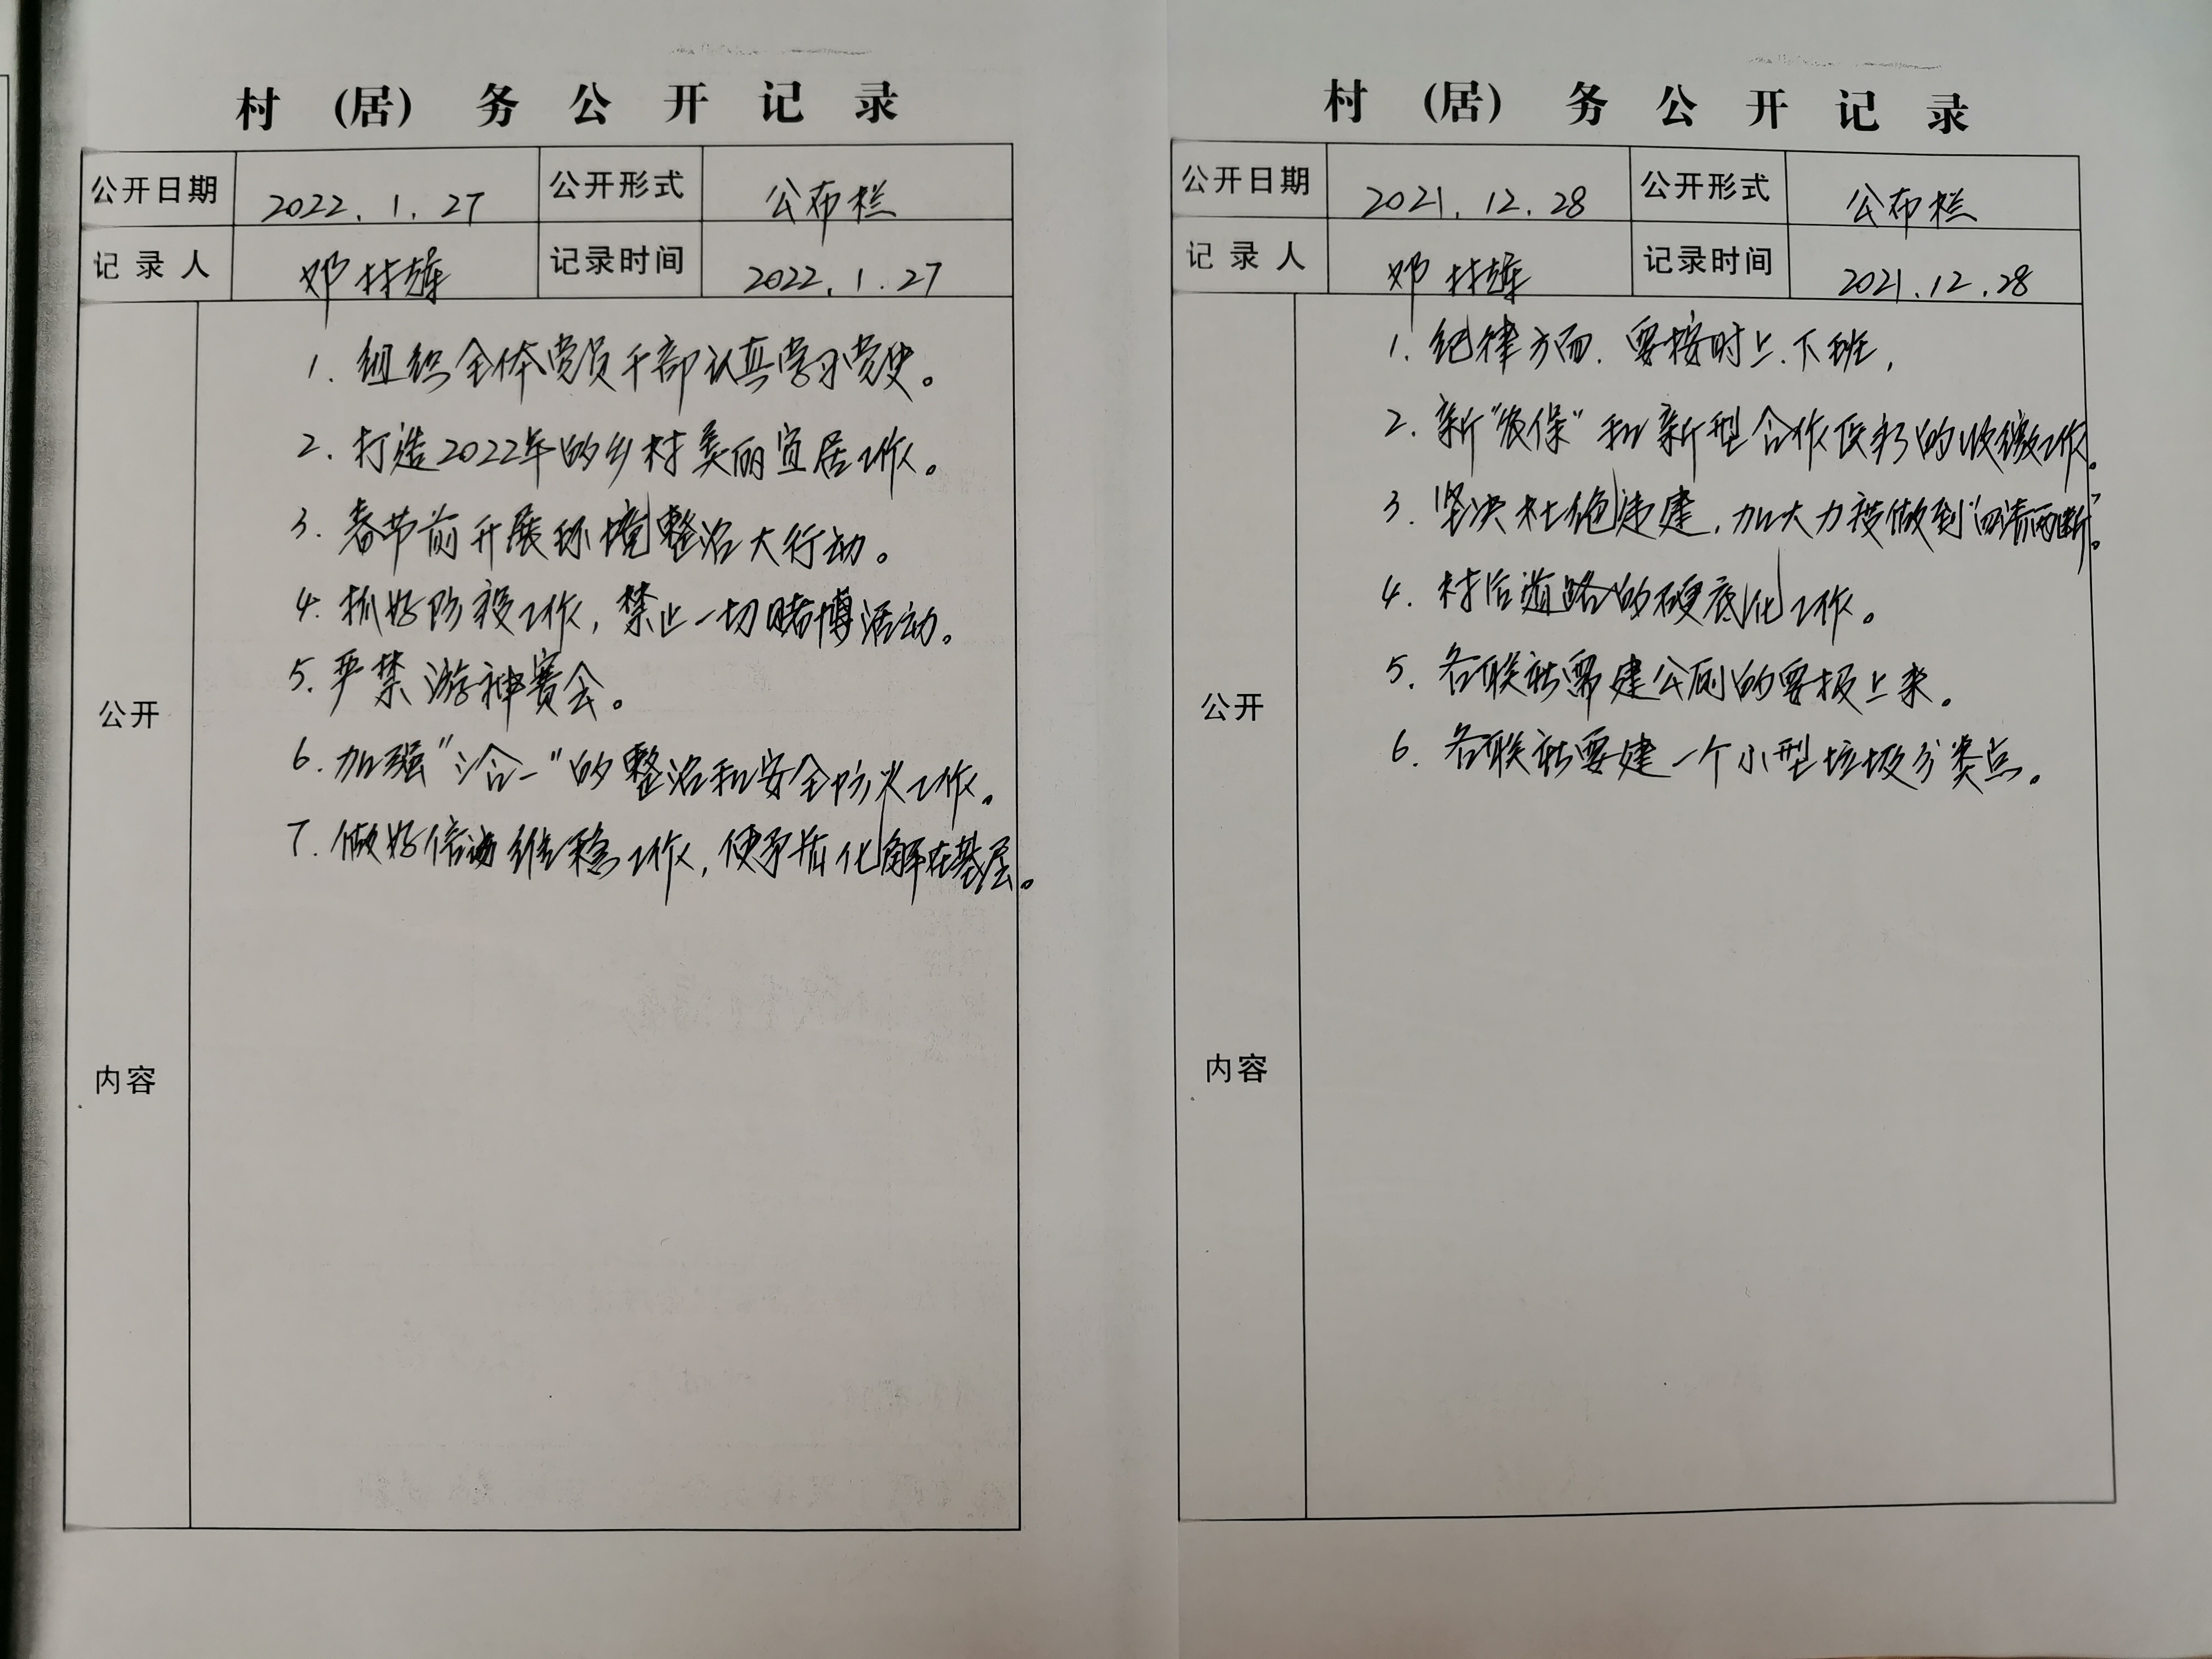 村（居）务公开记录
公开日期 2022.1.27 公开形式 公布栏
记录人 邓 记录时间 2022.1.27
公开内容
1. 组织全体党员干部认真学习党史。
2. 打造2022年的乡村美丽宜居工作。
3. 春节前开展环境整治大行动。
4. 抓好防疫工作，禁止一切赌博活动。
5. 严禁游神赛会。
6. 加强“三合一”的整治和安全防火工作。
7. 做好信访维稳工作，使矛盾化解在基层。
村（居）务公开记录
公开日期 2021.12.28 公开形式 公布栏
记录人 邓 记录时间 2021.12.28
公开内容
1. 纪律方面．要按时上．下班，
2. 新“农保”和新型合作医疗的收缴工作。
3. 坚决杜绝违建，加大力度做到“四清两断”。
4. 村后道路的硬底化工作。
5. 各联社需建公厕的要报上来。
6. 各联社要建一个小型垃圾分类点。